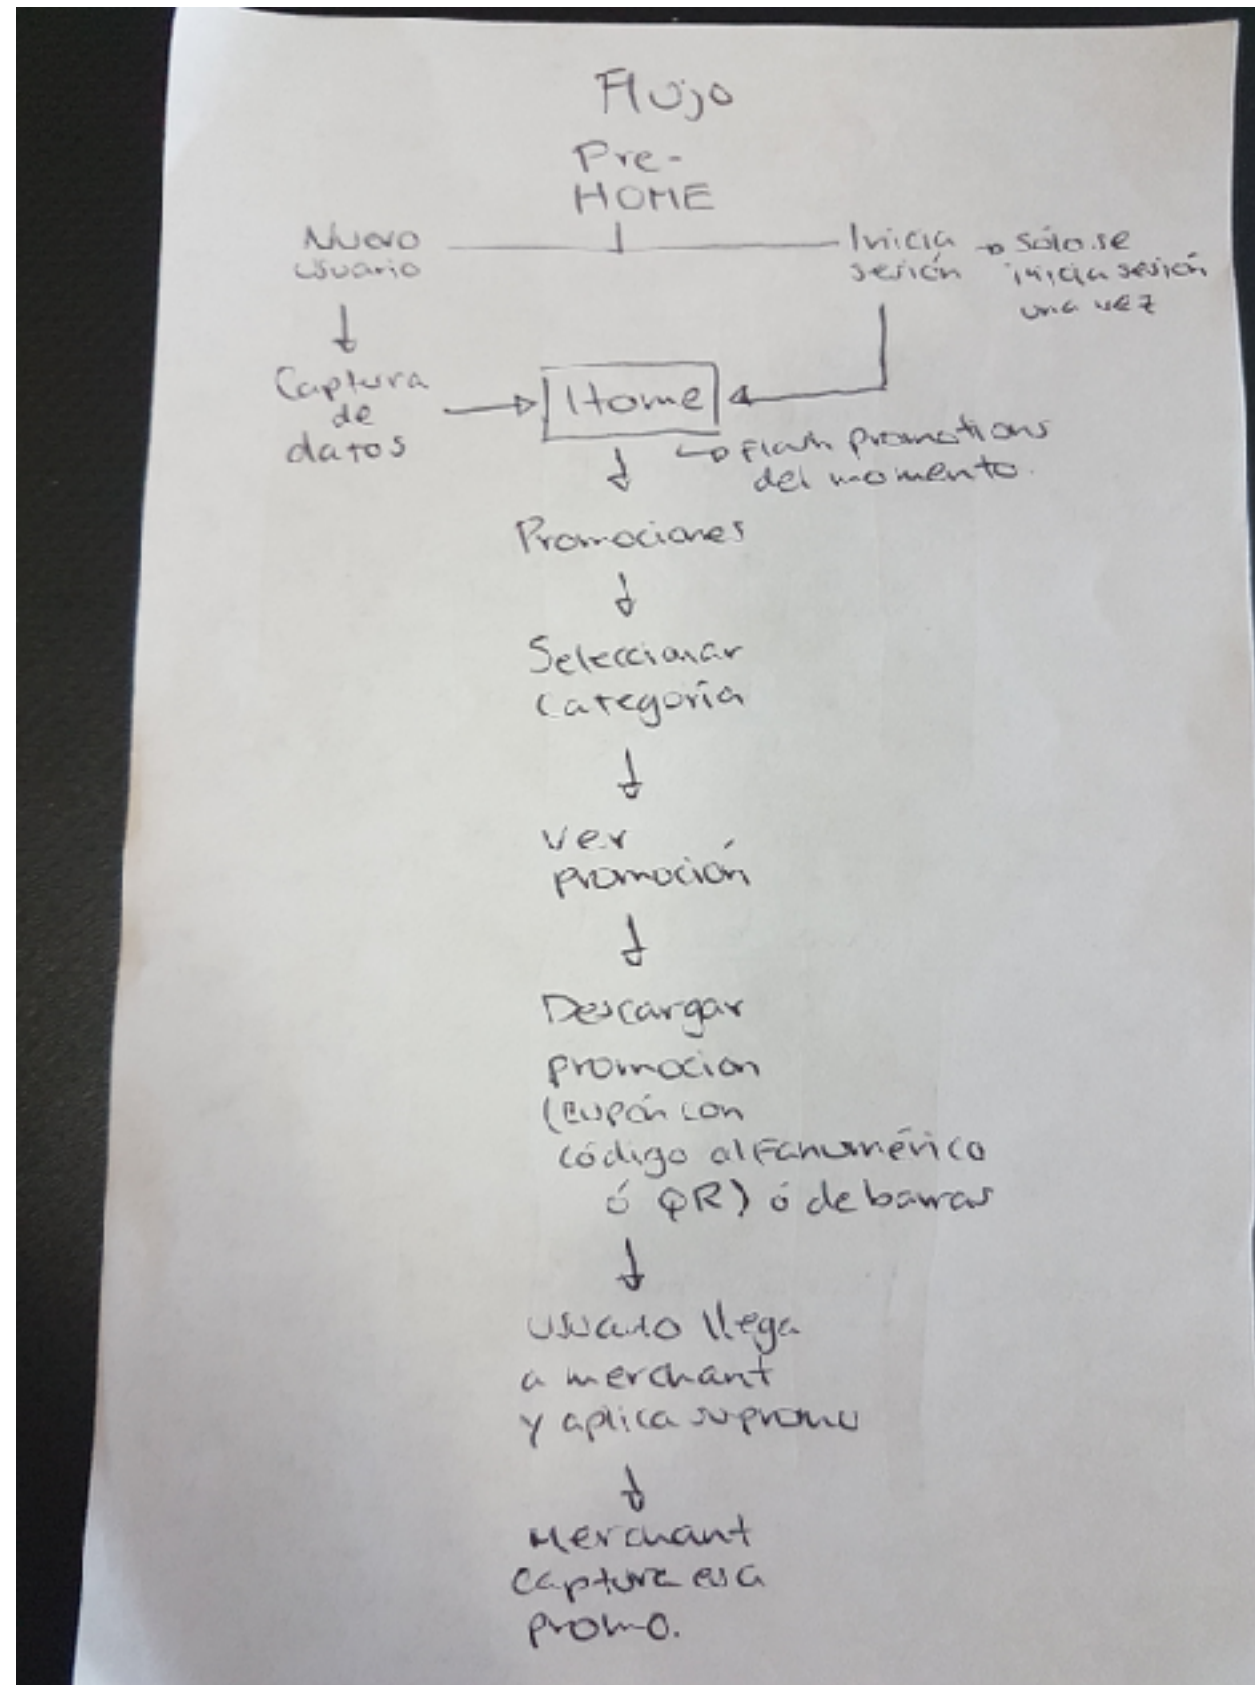 Flujo
Pre-
HOME
Nuevo
usuario
Inicia
sesión
Sólo se
inicia sesión
una vez
Captura
de
datos
Home
Flash promotions
del momento.
Promociones
Seleccionar
Categoría
Ver
promoción
Descargar
promocion
(cupón con
código alfanumérico
ó QR) ó de barras
Usuario llega
a merchant
y aplica su promo
Merchant
captura esa
promo.